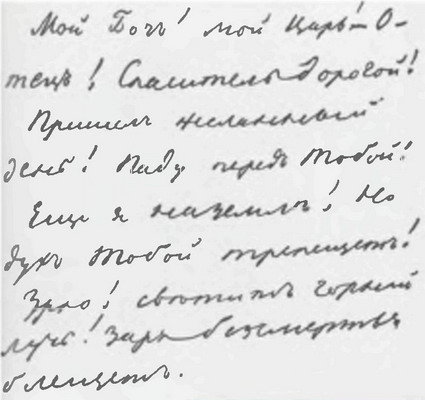 Мой Богъ! мой Царь! О-
тецъ! Спаситель дорогой!
Пришелъ желанный
день! Паду передъ Тобой!
Еще я на землѣ! Но
духъ Тобой трепещетъ!
Зрю! свѣтитъ горный
лучъ! Заря безсмертья
блещетъ.